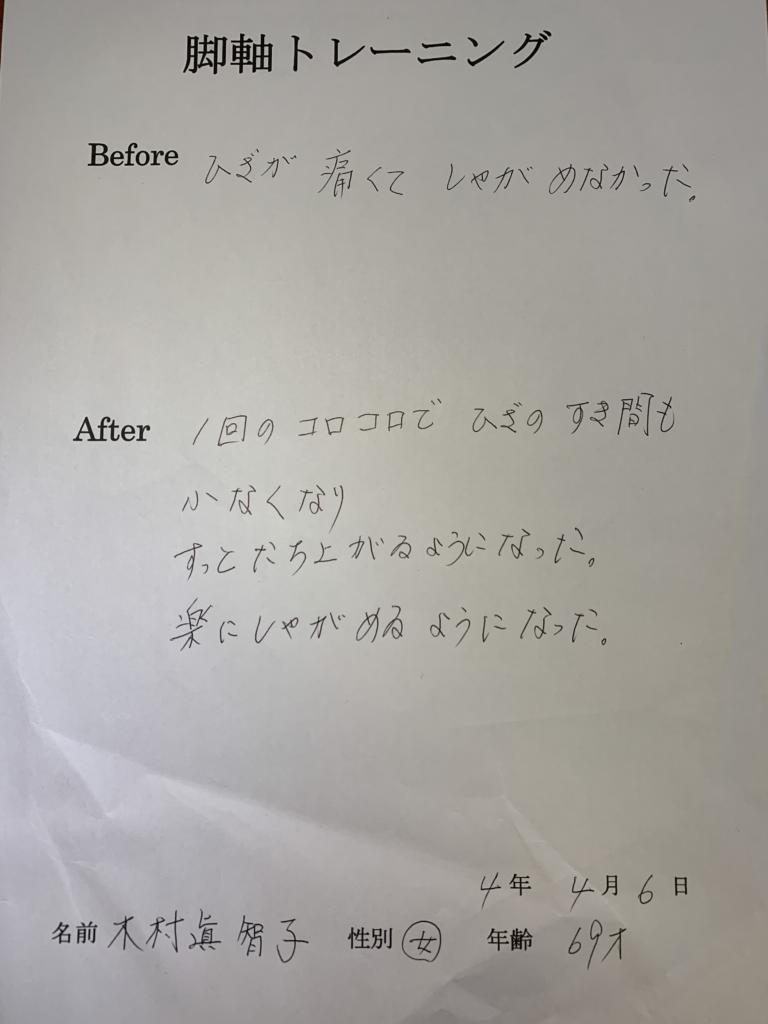 脚軸トレーニング
Before ひざが 痛くて しゃがめなかった。
After 1回の コロコロで ひざの すき間も
小なくなり
すっとたち上がるようになった。
楽にしゃがめるようになった。
4年 4月 6日
名前 木村眞智子 性別 女 年齢 69才